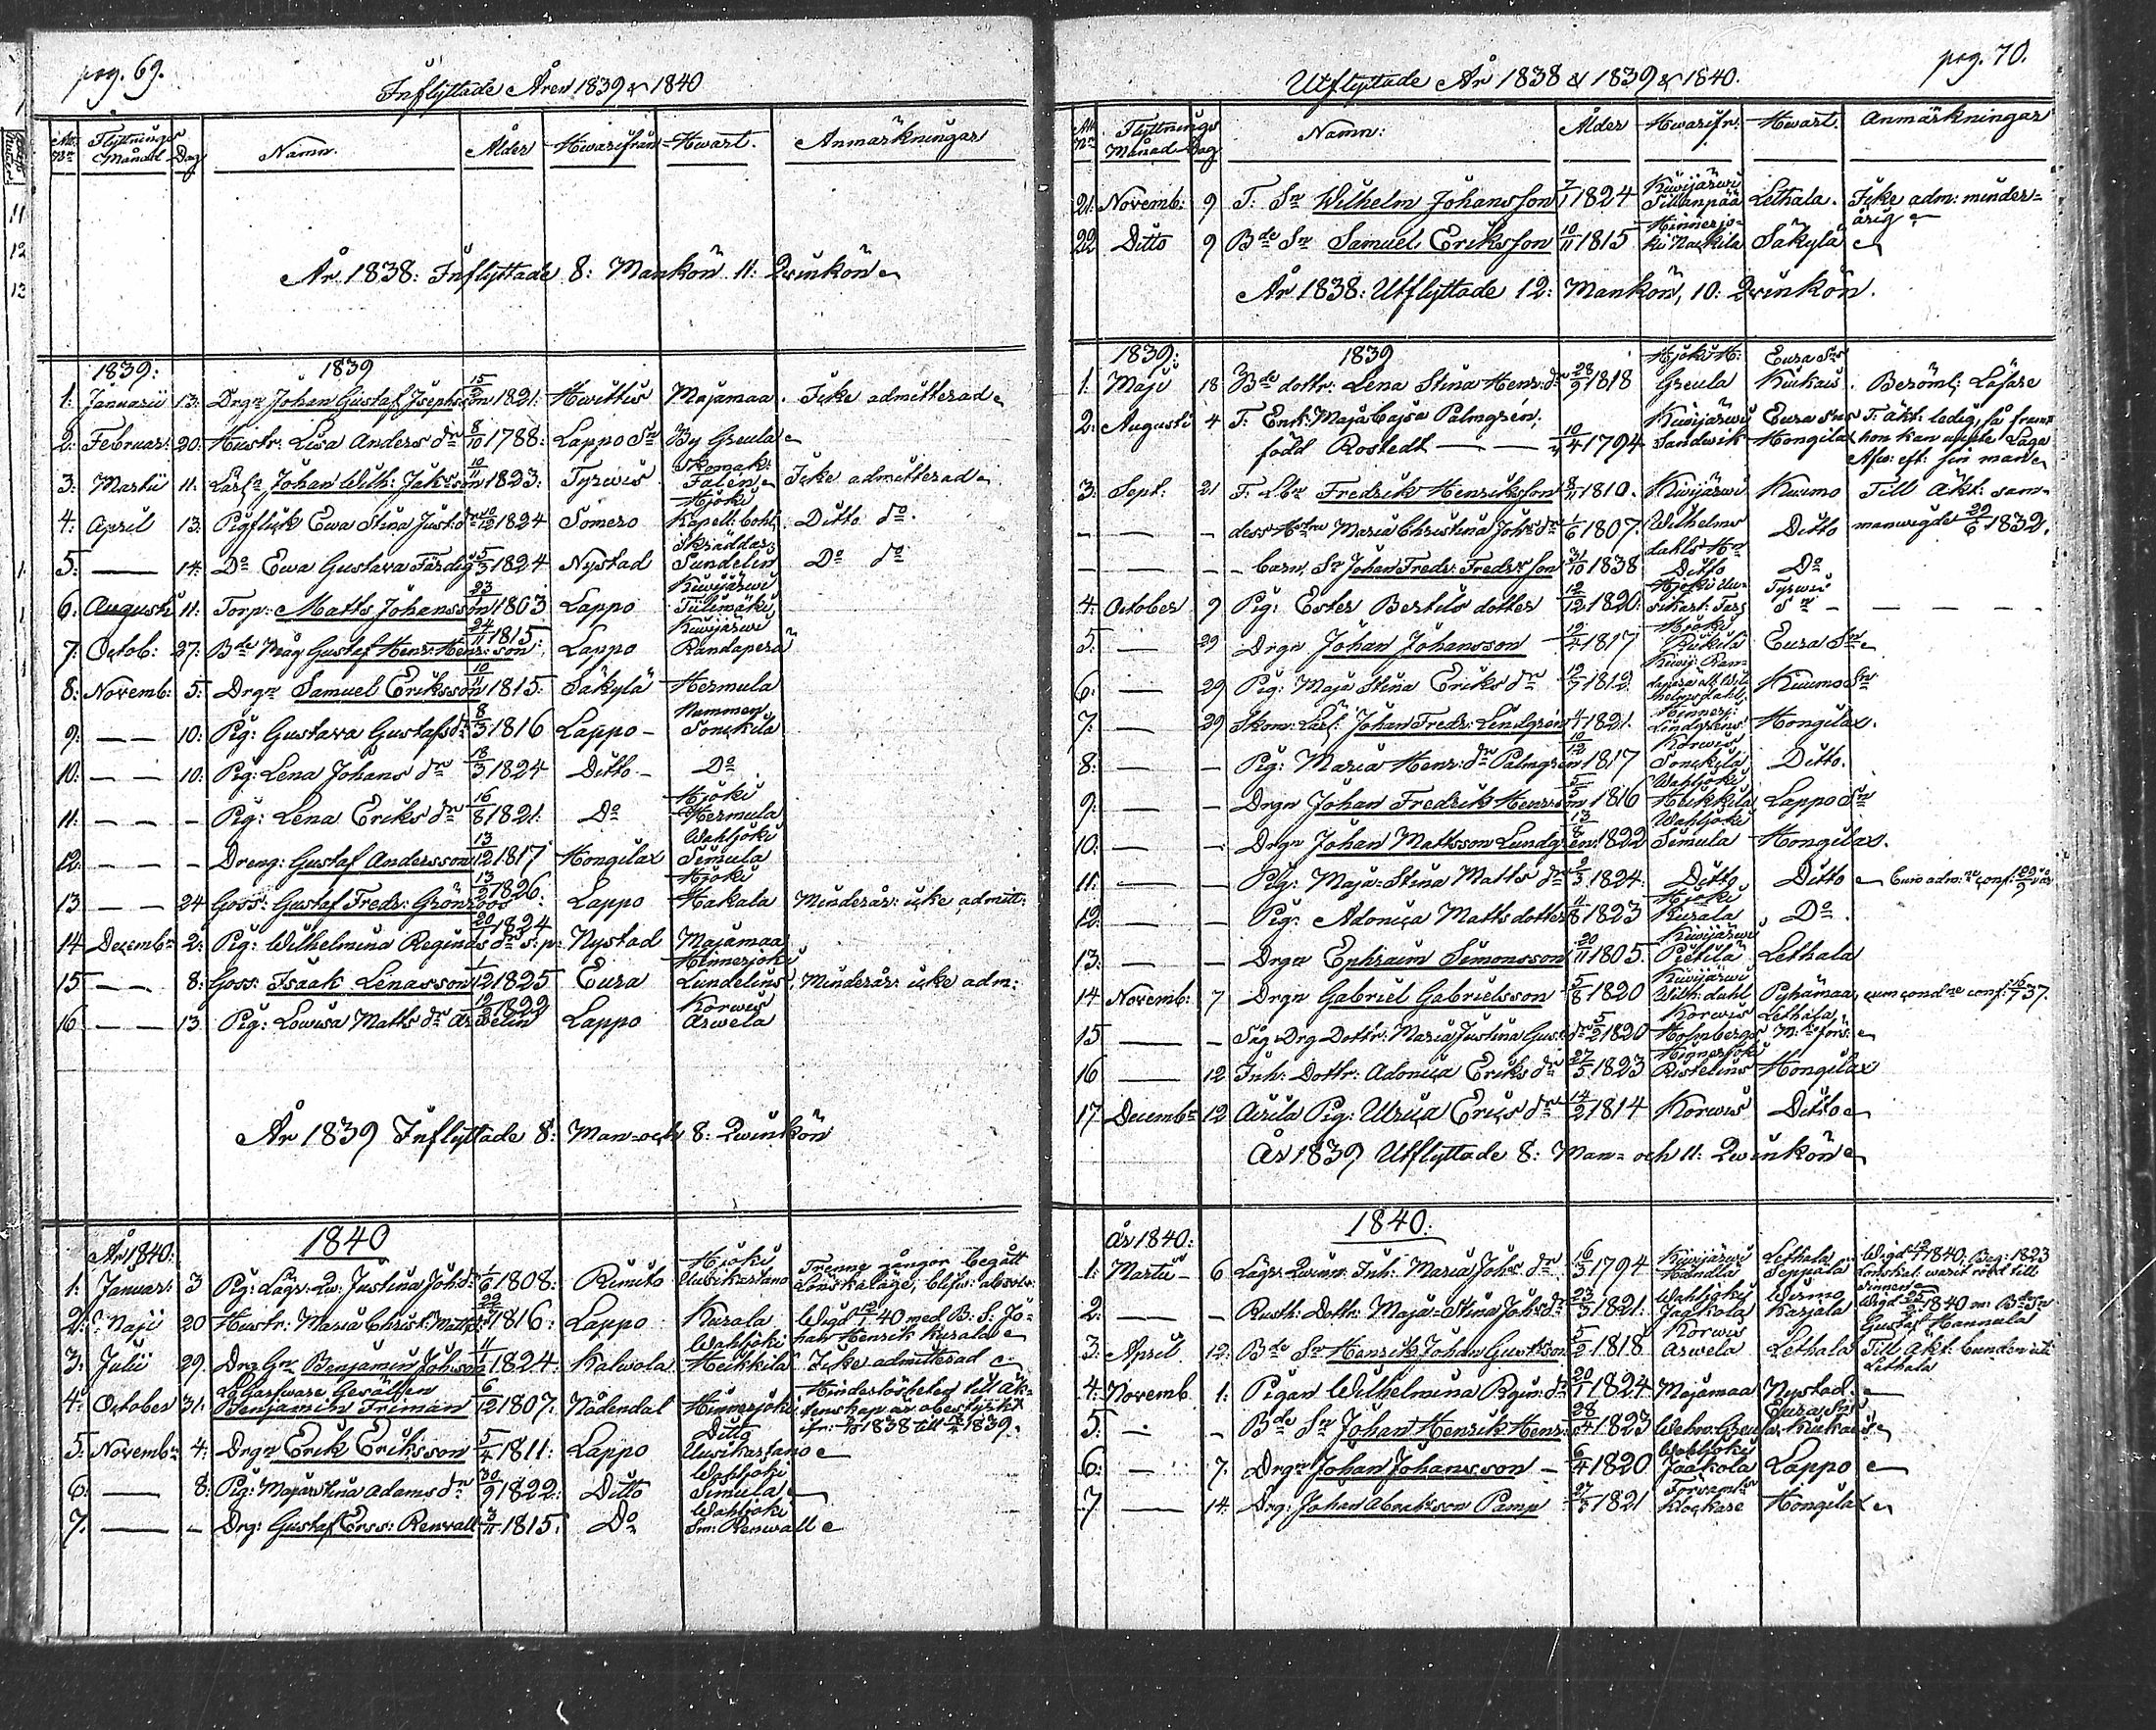 pag. 69.
Inflyttade Åren 1839 & 1840
Flyttnings
Månad Dag Namn. Ålder Hwarifrån Hwart. Anmärkningar
År 1838: Inflyttade 8: Mankön 11: Qwinkön
1839: 1839
1: Januarii 13: Drgn Johan Gustaf Josephsson 15/2 1821: Hwittis Majamaa. Icke admitterad
2: Februar: 20: Hustr: Lisa Anders dr 8/10 1788: Lappo Sn By Greula
3: Martii 11: Lärl: Johan Wilh: Jakssson 10/11 1823: Tyrwis Skomak: Falén Icke admitterad
4: April 13: Pigflick Ewa Stina Just: dr 1824 Somero Hjoki Kapell: Bohl: Ditto do.
5: — 14: Do Ewa Gustava Färdig 5/5 1824 Nystad Skräddar: Sundelin Do do
6: Augusti 11: Torp: Matts Johansson 23/1 1803 Lappo Kiwijärwi Tulimäki
7: Octob: 27: Bde Måg Gustaf Henr: Henr: son 24/11 1815: Lappo Kiwijärwi Randaperä
8: Novemb: 5: Drgn Samuel Eriksson 10/11 1815: Säkylä Hermula
9: — — 10: Pig: Gustava Gustafs dr 8/3 1816 Lappo — Nummen Sonckila
10: — — 10: Pig: Lena Johans dr 18/3 1824 Ditto — Do
11: — — – Pig: Lena Eriks dr 16/8 1821: Do Hjoki Hermula
12: — — – Dreng: Gustaf Andersson 13/12 1817 Hongilax Wahljoki Simula
13 — — 24 Goss: Gustaf Fredr: Grönroos 13/2 1826: Lappo Hjoki Hakala Minderår: icke admitt:
14 Decembr 2: Pig: Wilhelmina Reginas dr S: p: 20/1 1824 Nystad Majamaa
15 — — 8: Goss: Isaak Lenasson 1/12 1825 Eura Hinnerjoki Lundelins Minderår: icke adm:
16 — — 13 Pig: Lowisa Matts dr Arwelin 12/2 1822 Lappo Korwis Arwela
År 1839 Inflyttade 8: Man- och 8: Qwinkön
År 1840: 1840
1: Januar: 3 Pig: Lägr: Qw: Justina Joh: dr 1/6 1808: Rimito Hjoki Uusikartano Trenne gånger begått Lönskaläge, blifw: absolv:
2: Maji 20 Hustr: Maria Christ: Matts: dr 22/7 1816: Lappo Kurala Wigd 40 med B: S: Johan Henrik Kurala
3: Julii 29: Drg Gn Benjamin Johsson 11/2 1824: Kalwola Wahljoki Heikkilä Icke admitterad
4: October 31: Lg Garfware Gesällen Benjamin Friman 6/12 1807: Nådendal Hinnerjoki Hinderlösheten till Äktenskap är obestyrkt ifr: 1838 till 1839.
5: Novembr 4: Drgn Erik Eriksson 5/4 1811: Lappo Ditto Uusikartano
6: — 8: Pig: Maja Stina Adams dr 30/9 1822: Ditto Wahljoki Simula
7: — – Drg: Gustaf Erss: Renvall 3/11 1815: Do Wahljoki Sm: Renwall
pag. 70.
Utflyttade År 1838 & 1839 & 1840.
Flyttnings
Månad Dag Namn: Ålder Hwarifr: Hwart. Anmärkningar
21: Novemb: 9 T: Sn Wilhelm Johansson 7/1 1824 Kiwijärwi Sillanpää Lethala. Icke adm: minderårig
22 Ditto 9 Bde Sn Samuel Eriksson 10/11 1815 Hinnerjoki Säkylä
År 1838: Utflyttade 12: Mankön, 10: Qwinkön.
1839: 1839
1: Maji 18 Bde dottr: Lena Stina Henr: dr 28/9 1818 Hjoki H: Greula Eura Sn Kiukais. Beröml: Läsare
2: Augusti 4 T: Enk: Maja Cajsa Palmgrén, född Rostedt — — 10/4 1794 Kiwijärwi Sandwik Eura Sns Honkilax T: äkt: ledig, så framt hon kan
3: Sept: 21 T: Fredrik Henriksson 8/11 1810. Kiwijärwi Kiumo Till Äkt: sam-
– – – dess Maria Christina Johs dr 1/6 1807. Wilhelms Ditto manwigde 29/6 1832.
– – – – barn, Sn Johan Fredr: Fredr: son 31/10 1838 dahls Ditto Do
4: October 9 Pig: Ester Bertils dotter 12/12 1820: Hjoki Tyrwis
5: — 29 Drgn Johan Johansson 12/4 1817 Hjoki Eura Sn
6: — 29 Pig: Maja Stina Eriks dr 12/7 1812 Kiwij: Ran-dapera alt Wilhelmsdahl. Kiumo Sn
7: — 29 Skom: Lärl: Johan Fredr: Lindgrén 4/1 1821. Hinnerj: Lindgrens: Hongilax.
8: — – Pig: Maria Henr: dr Palmgrén 10/12 1817 Korwis Sonckila Ditto.
9: — – Drgn Johan Fredrik Henr: son 5/5 1816 Wahljoki Heikkilä Lappo Sn
10: — – Drgn Johan Mattsson Lundgrén: 13/8 1822 Wahljoki Simula Hongilax.
11: — – Pig: Maja-Stina Matts dr 2/3 1824: Ditto Ditto
12: — – Pig: Adonica Matts dotter 11/8 1823 Hjoki Kurala Do.
13: — – Drgn Ephraim Simonsson 20/11 1805. Kiwijärwi Pietilä Lethala
14 Novemb: 7 Drgn Gabriel Gabrielsson 5/8 1820 Kiwijärwi Wilh: dahl Pyhämaa
15 — – Såg Drg Dottr: Maria Justina Gust: dr 5/2 1820 Korwis Holmbergs Lethala
16 — 12 Inh: Dottr: Adonica Eriks dr 27/5 1823 Hinnerjoki Ristelins Hongilax
17 Decembr 12 Airila Pig: Ulrica Erics dr 14/2 1814 Korwis Ditto
År 1839 Utflyttade 8: Man- och 11: Qwinkön
År 1840: 1840.
1: Martii — 6 Lägr: Qwinn: Inh: Maria Johs dr 16/3 1794 Kiwijärwi Lethala Seppälä Wigd 1840. Beg: 1823
2: — – Rusth: Dottr: Maja-Stina Johs: dr 23/3 1821: Wahljoki Jaakola Wirmo Karjala Wigd 1840 m: Gustaf Hannula
3: April 12: Bde Sn Henrik Johan Gustsson 5/2 1818 Korwis Arwela Lethala Till Äkt: bunden Lethala
4: Novemb 1: Pigan Wilhelmina Regin: dr 20/1 1824 Majamaa Nystad.
5: — – Bde Sn Johan Henrik Henr: 28/4 1823 Greula Eura Sn Kiukais
6: — 7: Drgn Johan Johansson — 6/4 1820 Wahljoki Jaakola Lappo
7 — 14: Drg: Johan Abrahsson Pamp 27/3 1821 Klockare Hongilax